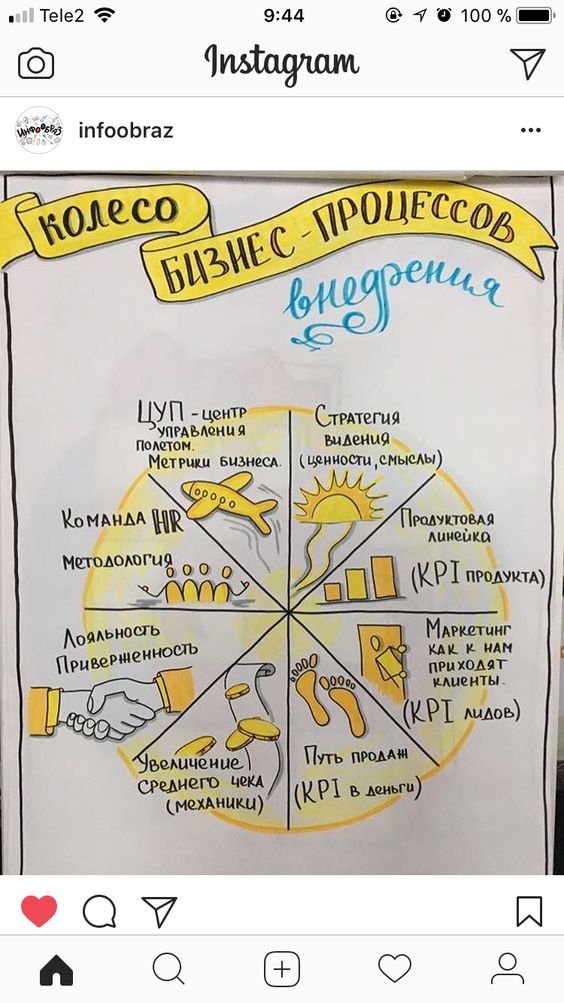 Tele2 9:44 100 %
Instagram
ИНФООБРАЗ infoobraz
КОЛЕСО
БИЗНЕС-ПРОЦЕССОВ
внедрения
ЦУП - центр
управления
полетом.
Метрики бизнеса.
Стратегия
видения
(ценности, смыслы)
Команда HR
методология
Продуктовая
линейка
(KPI продукта)
Лояльность
Приверженность
Маркетинг
как к нам
приходят
клиенты.
(KPI лидов)
Увеличение
среднего чека
(механики)
Путь продаж
(KPI в деньги)